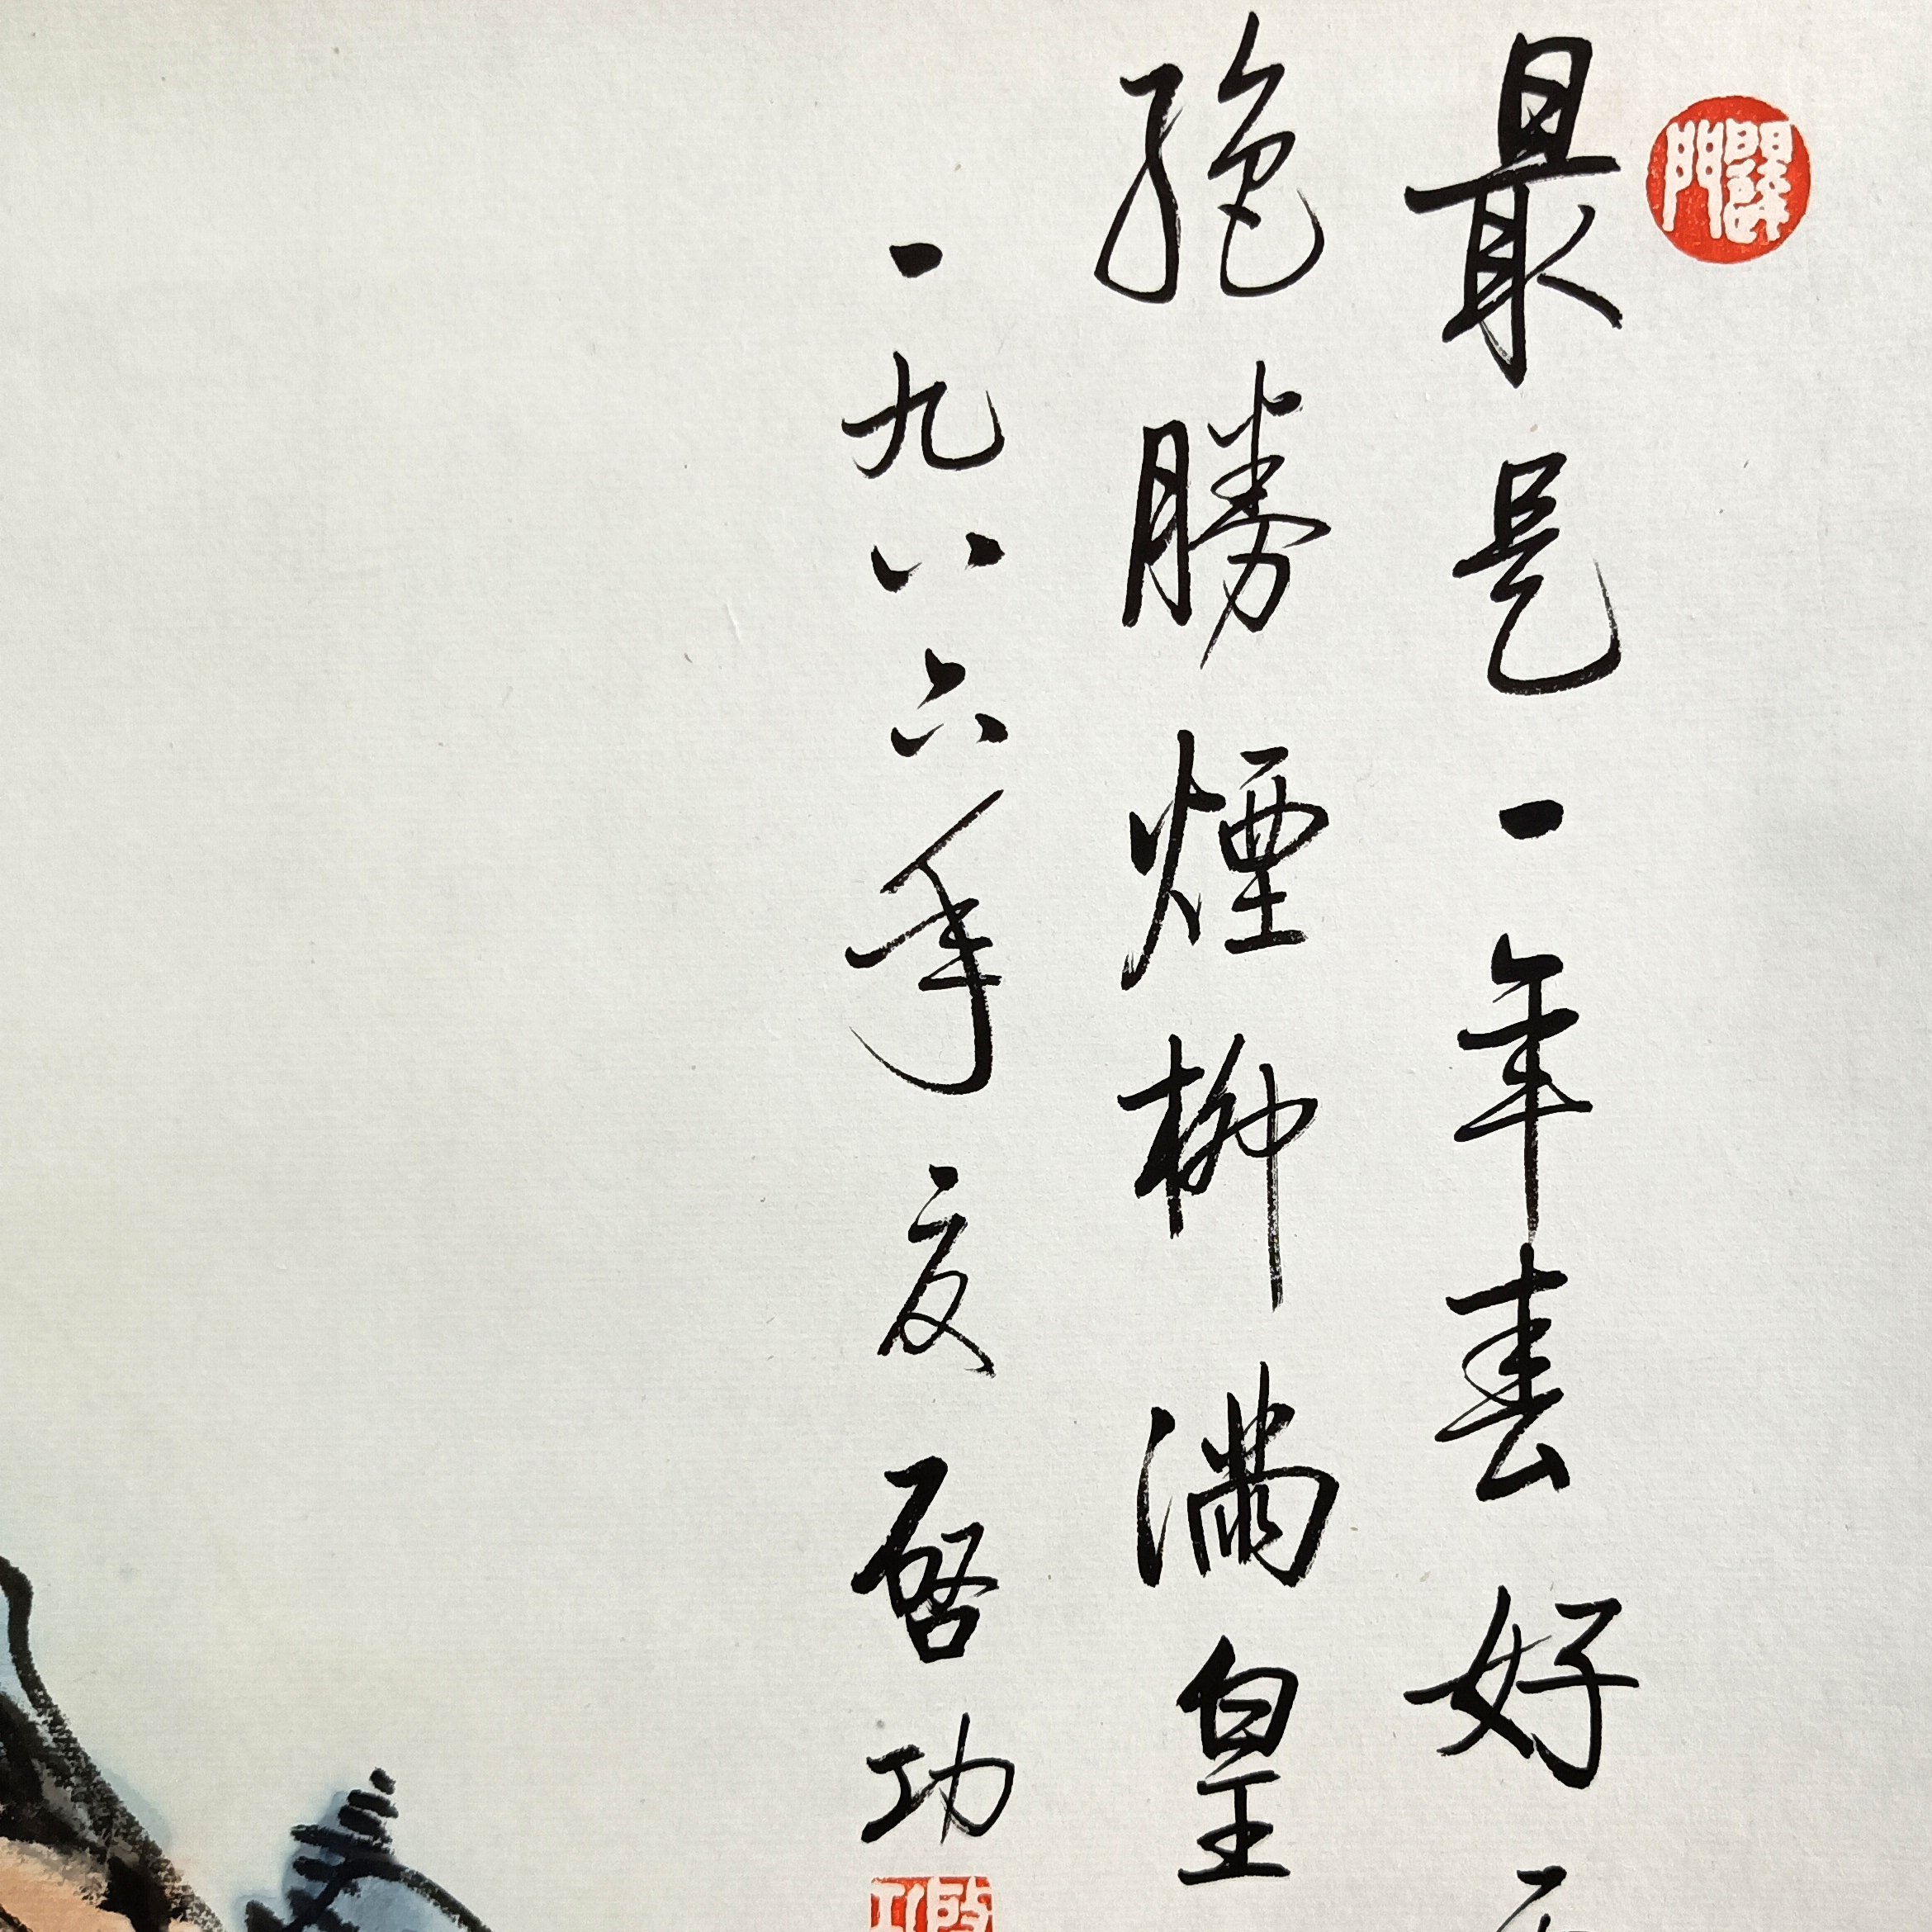 最是一年春好
絕勝煙柳滿皇
一九八六年夏啓功